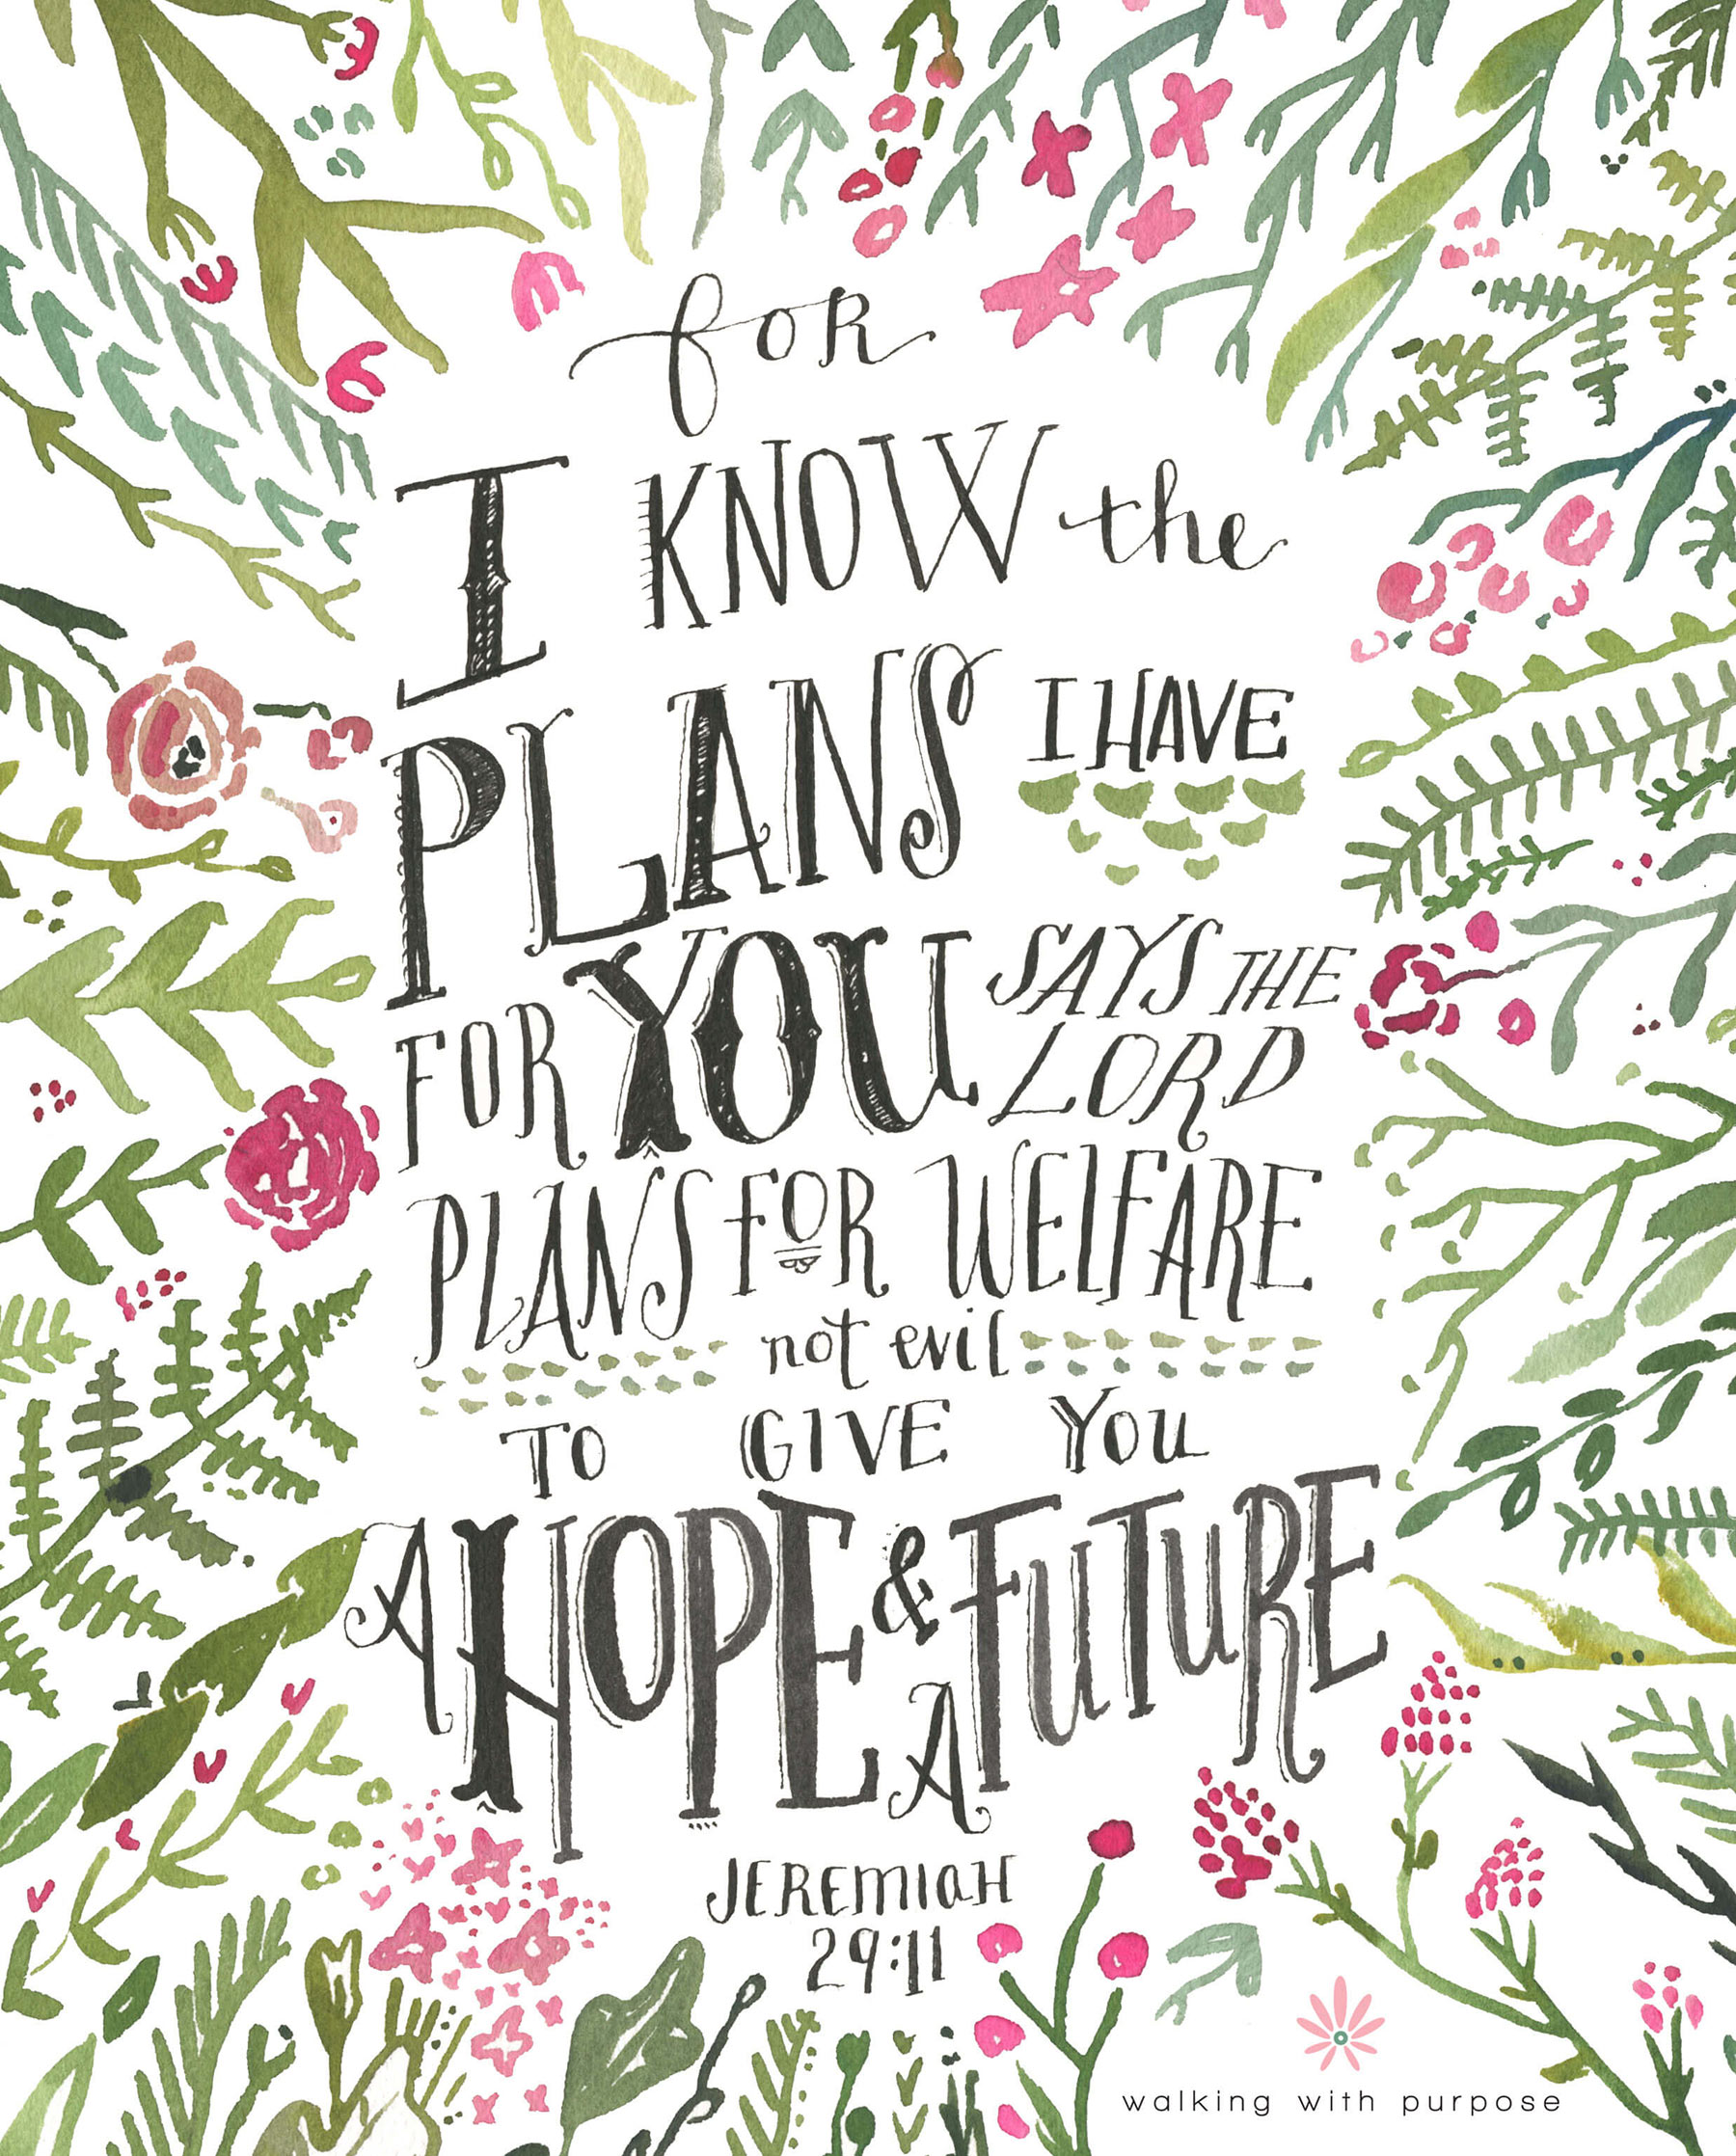 for
I KNOW the
PLANS I HAVE
FOR YOU SAYS THE
LORD
PLANS FOR WELFARE
not evil
TO GIVE YOU
A HOPE & A FUTURE
JEREMIAH
29:11
walking with purpose